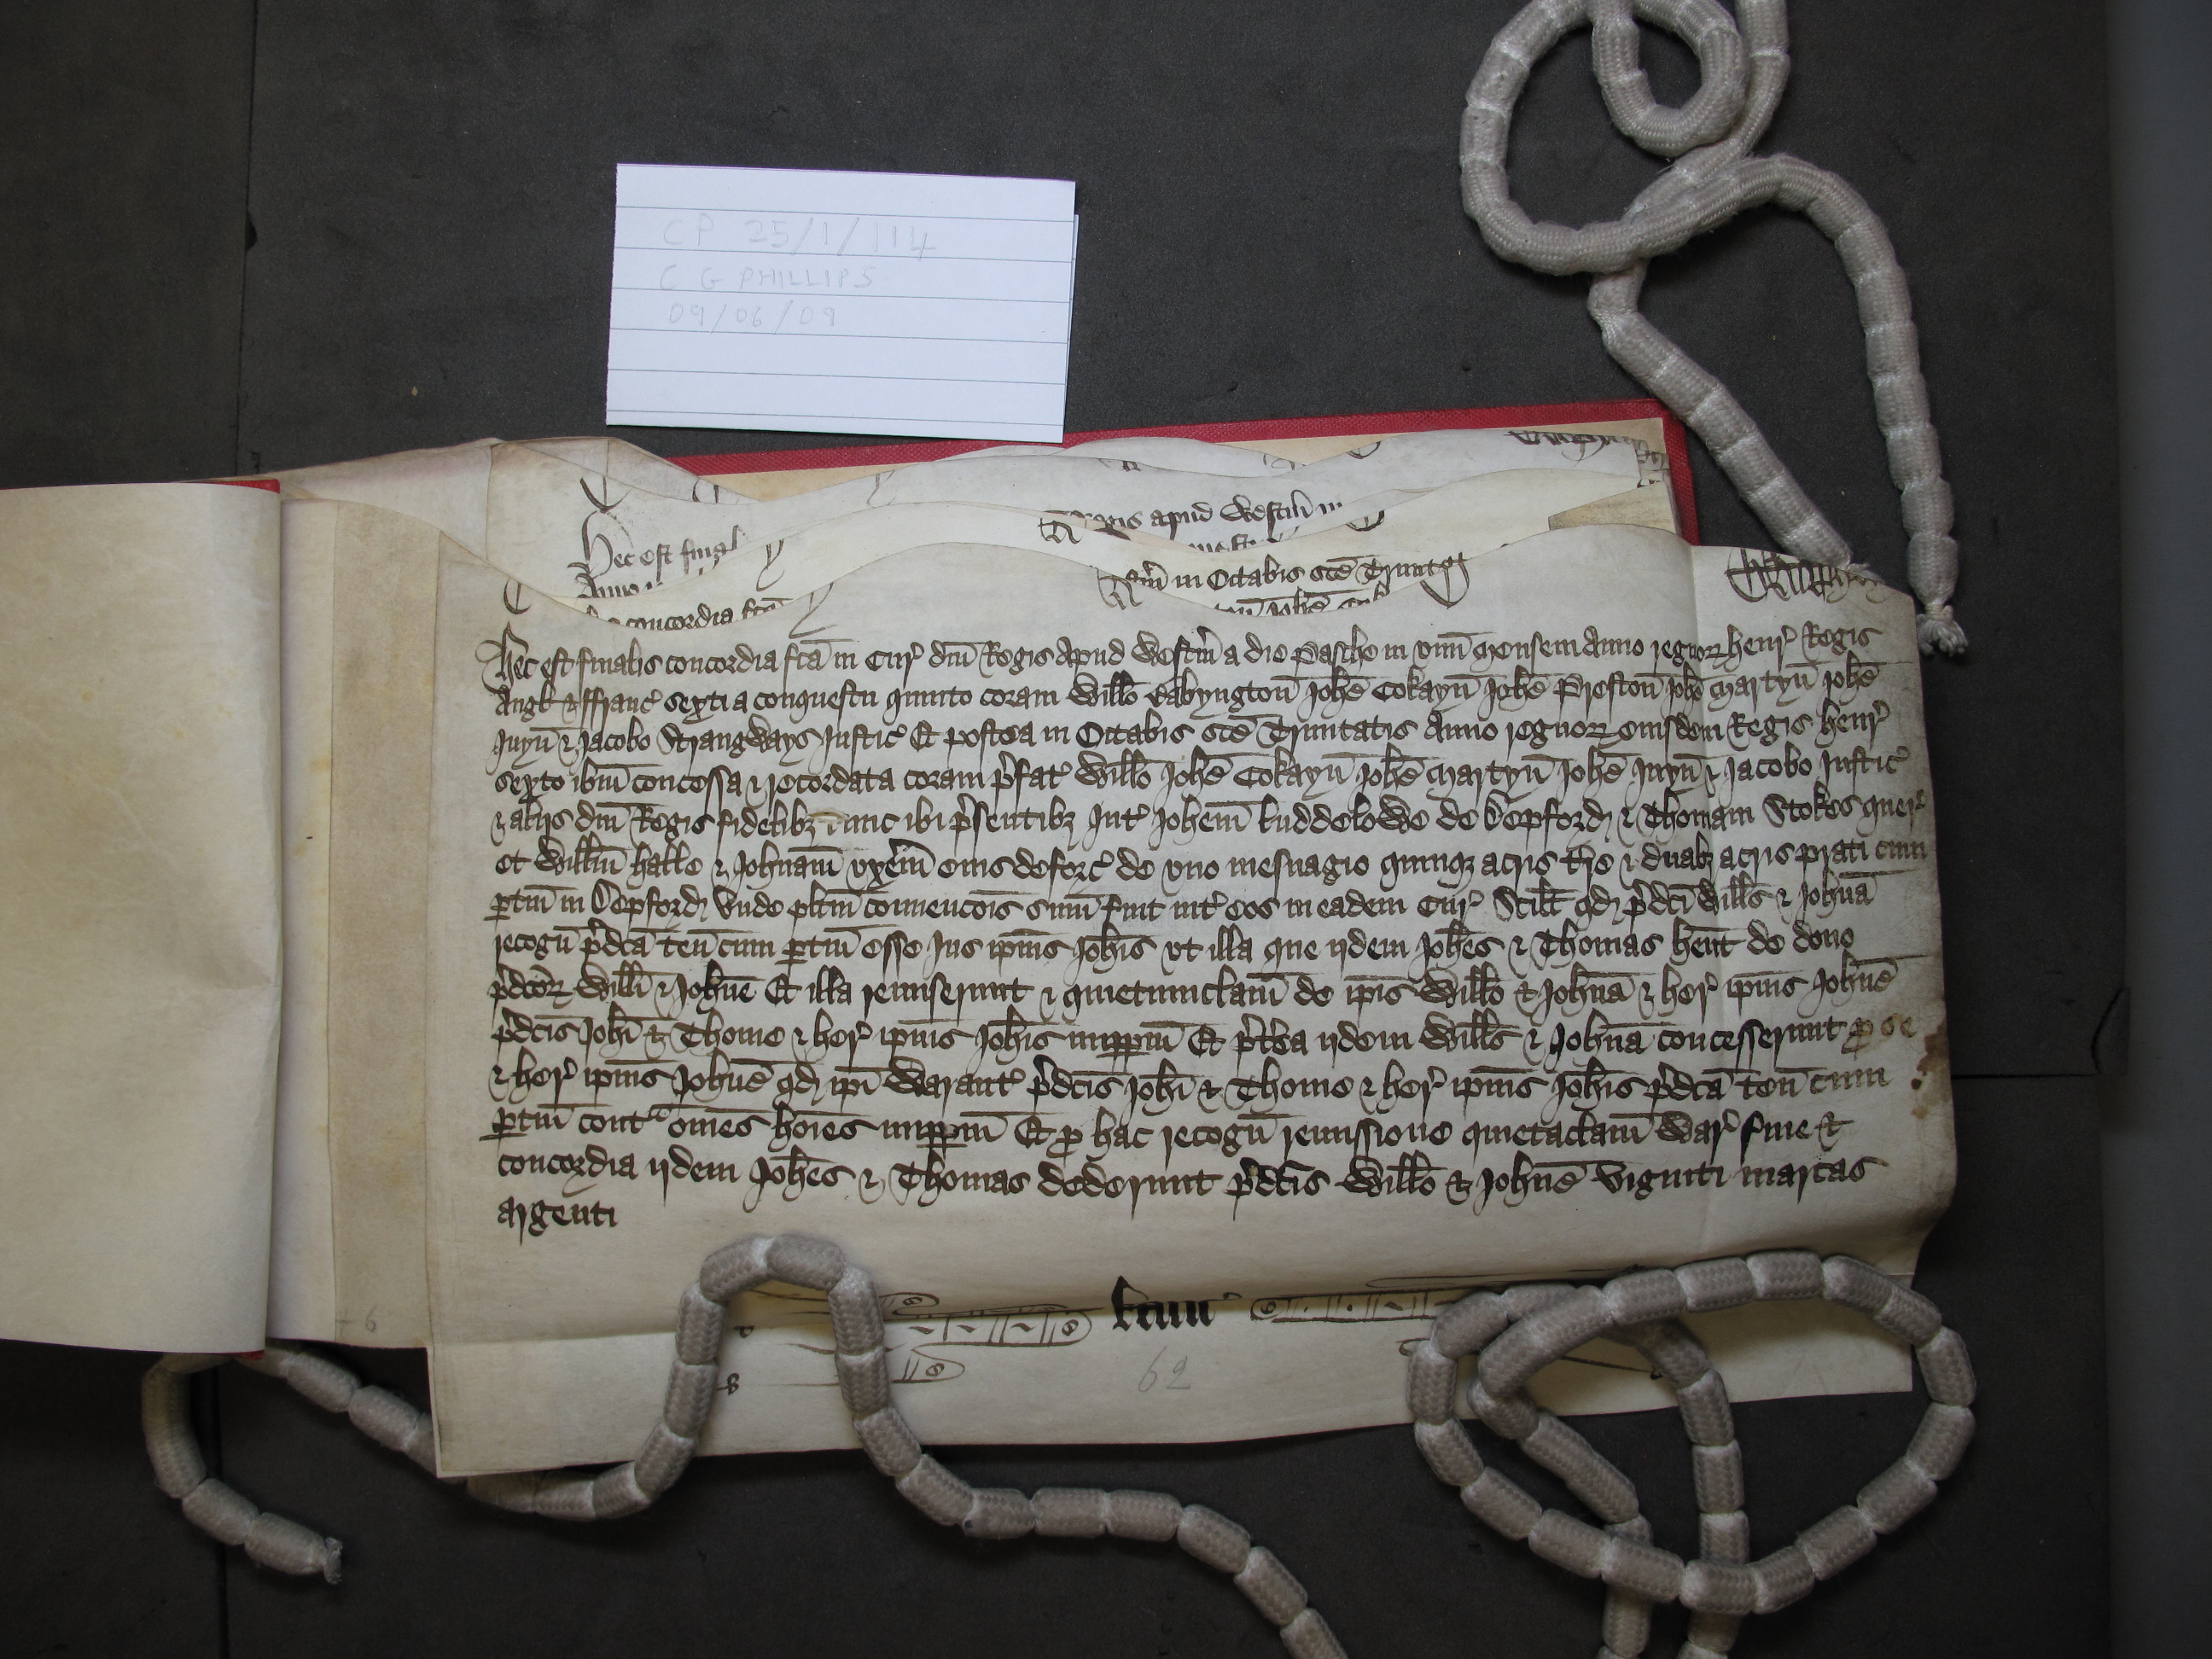 CP 25/1/114
C G PHILLIPS
09/06/09
Hec est
Regis apud Westm̄ in
concordia
in Octabis sc̄e Trinitat
Hec est finalis concordia fc̄a in Cur̉ dn̄i Regis Apud Westm̄ a die Pasche in vnū Mensem Anno regnoꝝ Henr̉ Regis
Angł & ffranc̉ sexti a conquestu quinto coram Wiłło Babyngton̄ Joħe Cokayn̄ Joħe Preston̄ Joħe Martyn̄ Joħe
Juyn̄ & Jacobo Strangways Justic̉ Et postea in Octabis sc̄e Trinitatis Anno regnoꝝ eiusdem Regis Henr̉
sexto ibm̄ concessa & recordata coram p̉fat̉ Wiłło Joħe Cokayn̄ Joħe Martyn̄ Joħe Juyn̄ & Jacobo Justic̉
& alijs dn̄i Regis fidelibꝫ tunc ibi p̉sentibꝫ Int̉ Joħem Luddelowe de Depford & Thomam Stokes quer̉
et Wiłłm Halle & Joħnam vx̉em eius deforc̉ de vno mesuagio quinqꝫ acris t̉re & duabꝫ acris prati cum
ꝑtin̄ in Depford Vnde plītm conuencōis sum̄ fuit int̉ eos in eadem Cur̉ Sciłt qd p̉dc̄i Wiłłs & Joħna
recogn̄ p̉dc̄a ten̄ cum ꝑtin̄ esse Jus ipīus Joħis vt illa que ijdem Joħes & Thomas hent̄ de dono
p̉dc̄oꝝ Wiłłi & Joħne Et illa remiserunt & quietumclam̄ de ip̄is Wiłło & Joħna & her̉ ipīus Joħne
p̉dc̄is Joħi & Thome & her̉ ipīus Joħis imꝑpm̄ Et p̉t̉ea ijdem Wiłłs & Joħna concesserunt ꝓ se
& her̉ ipīus Joħne qd ip̄i Warant̉ p̉dc̄is Joħi & Thome & her̉ ipīus Joħis p̉dc̄a ten̄ cum
ꝑtin̄ contᵃ om̄es hoīes imꝑpm̄ Et ꝓ hac recogn̄ remissione quietaclam̄ War̉ fine &
concordia ijdem Joħes & Thomas dederunt p̉dc̄is Wiłło & Joħne viginti marcas
argenti
kanc̉
62